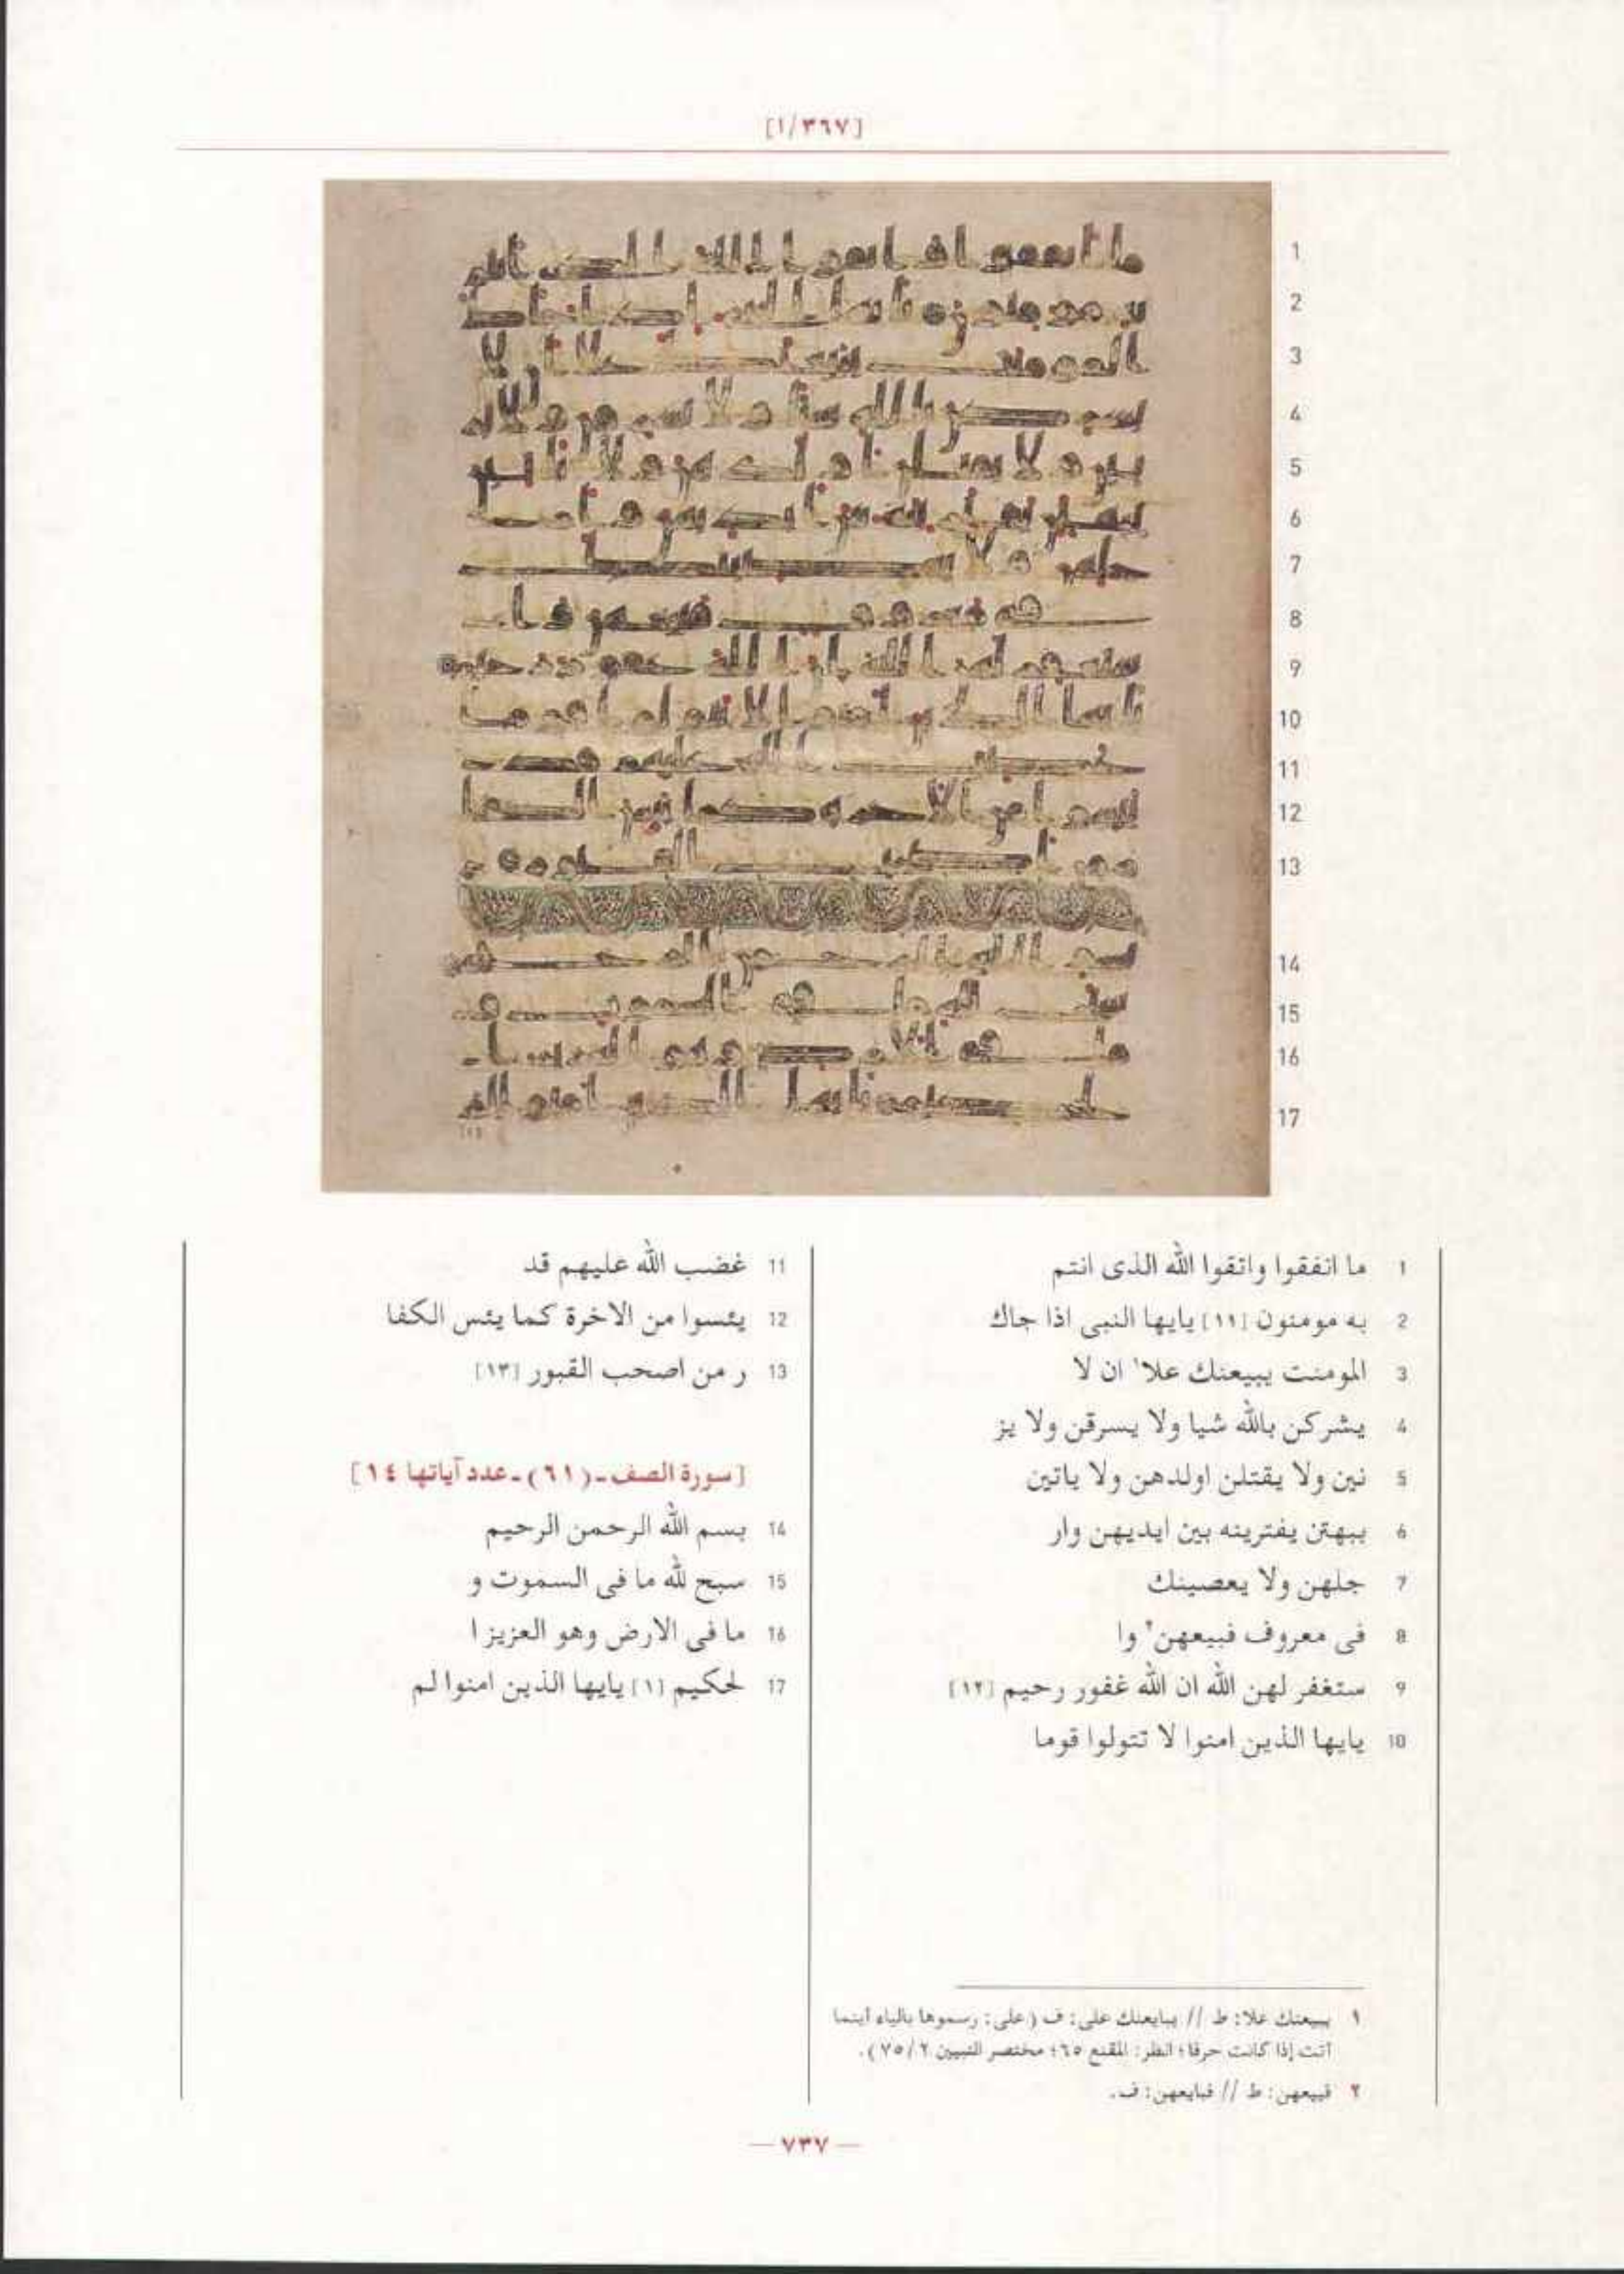 [١/٣٦٧]
1 ما انفقوا واتقوا الله الذى انتم
2 به مومنون [١١] يايها النبى اذا جاك
3 المومنت يبيعنك علا١ ان لا
4 يشركن بالله شيا ولا يسرقن ولا يز
5 نين ولا يقتلن اولدهن ولا ياتين
6 ببهتن يفترينه بين ايديهن وار
7 جلهن ولا يعصينك
8 فى معروف فبيعهن٢ وا
9 ستغفر لهن الله ان الله غفور رحيم [١٢]
10 يايها الذين امنوا لا تتولوا قوما
11 غضب الله عليهم قد
12 يئسوا من الاخرة كما يئس الكفا
13 ر من اصحب القبور [١٣]
[سورة الصف ـ (٦١) ـ عدد آياتها ١٤]
14 بسم الله الرحمن الرحيم
15 سبح لله ما فى السموت و
16 ما فى الارض وهو العزيز ا
17 لحكيم [١] يايها الذين امنوا لم
١ يبيعنك علا: ط // يبايعنك على: ف (على: رسموها بالياء أينما
أتت إذا كانت حرفا؛ انظر: المقنع ٦٥؛ مختصر التبيين ٢/ ٧٥).
٢ فبيعهن: ط // فبايعهن: ف.
— ٧٣٧ —